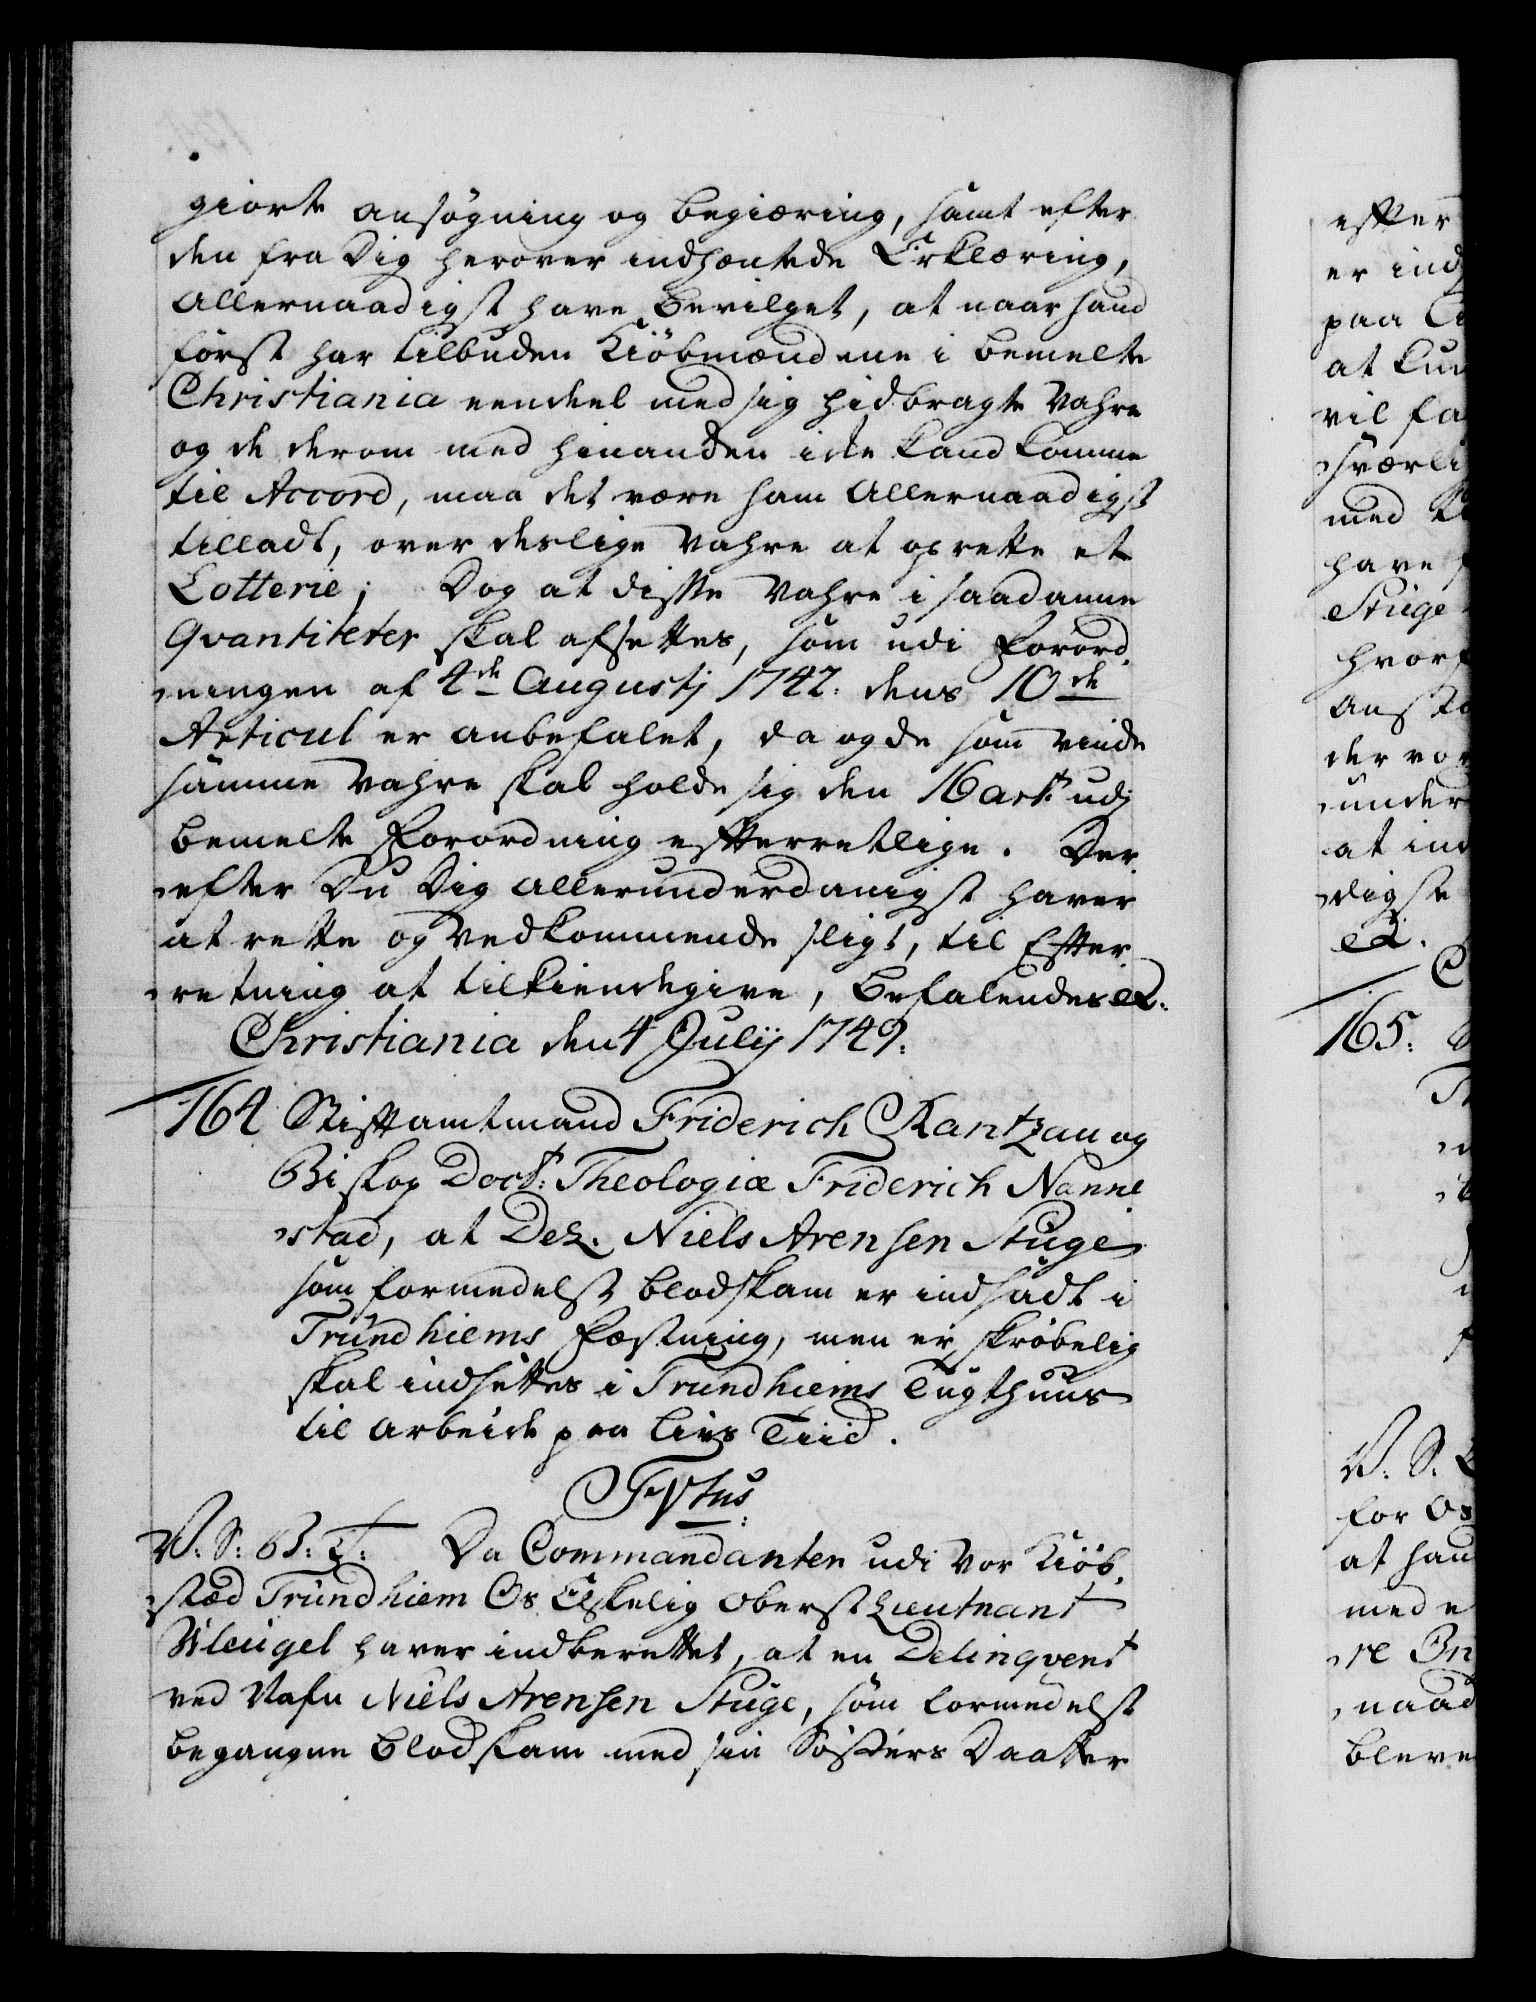 giorte ansøgning og begiæring, samt efter
den fra Dig herover indhæntede Erklæring,
Allernaadigst have bevilget, at naar hand
først har tilbuden Kiøbmændene i bemelte
Christiania eendeel med sig hidbragte Vahre
og de derom med hinanden icke kand komme
til Accord, maa det være ham Allernaadigst
tilladt, over deslige Vahre at oprette et
Lotterie; Dog at disse Vahre i saadanne
Qvantiteter skal afsettes, som udi Forord¬
¬ningen af 4de Augustj 1742. dens 10de
Articul er anbefalet, da og de som vinde
samme Vahre skal holde sig den 16 art: udj
bemelte Forordning efterretlige. Der
¬efter Du Dig allerunderdanigst haver
at rette og vedkommende sligt, til Efter¬
¬retning at tilkiendegive, Befalendes etc:
Christiania den 4 Julij 1749.
164 Stiftamtmand Friderich Rantzau og
Biskop Doct: Theologiæ Friderich Nanne
¬stad, at Del. Niels Arensen Stuge
som formedelst blodskam er indsadt i
Trundhiems Fæstning, men er skrøbelig
skal indsettes i Trundhiems Tugthuus
til Arbeide paa Livs Tiid.
F5tus:
V: S: B: T: Da Commandanten udi Vor Kiøb¬
¬stæd Trundhiem Os Elskelig Oberstlieutnant
Wleugel haver indberettet, at en Delinqvent
ved Nafn Niels Arensen Stuge, som formedelst
begangne Blodskam med sin Søsters Daatter
efter
er ind
paa
at kun
vil fa
sværli
med
have
Stuge
hvorf
der vor
¬under
at ind
¬digste
etc.
165:
V: S.
for Os
at han
med e
¬naad
bleve